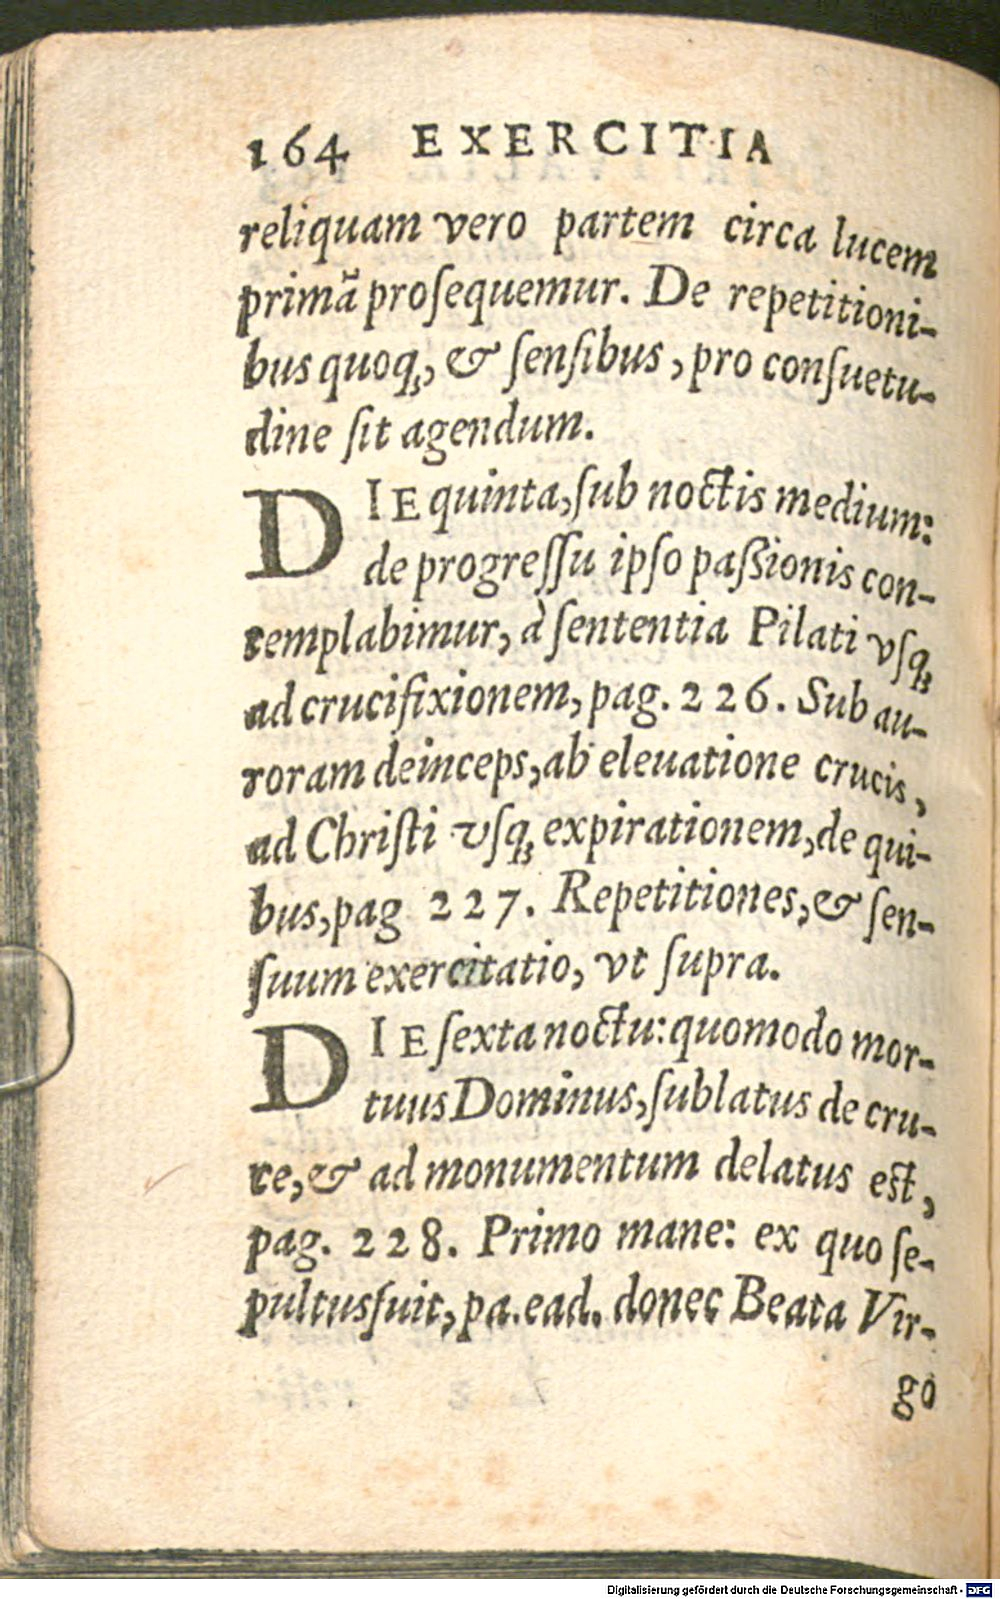 164 EXERCITIA
reliquam vero partem circa lucem
primã proſequemur. De repetitioni-
bus quoq;, & ſenſibus, pro conſuetu-
dine ſit agendum.
DIE quinta, ſub noctis medium:
de progreſſu ipſo paßionis con-
templabimur, à ſententia Pilati vſq;
ad crucifixionem, pag. 226. Sub au-
roram deinceps, ab eleuatione crucis,
ad Chriſti vſq; expirationem, de qui-
bus, pag 227. Repetitiones, & ſen-
ſuum exercitatio, vt ſupra.
DIE ſexta noctu: quomodo mor-
tuus Dominus, ſublatus de cru-
ce, & ad monumentum delatus eſt,
pag. 228. Primo mane: ex quo ſe-
pultus fuit, pa. ead. donec Beata Vir-
go
Digitalisierung gefördert durch die Deutsche Forschungsgemeinschaft - DFG